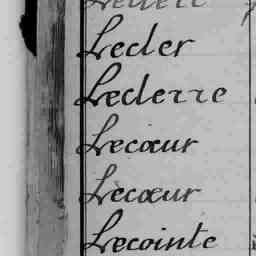 Lecler
Leclerre
Lecœur
Lecœur
Lecointe